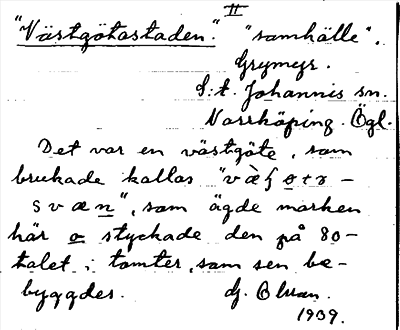 II
"Västgötastaden". "samhälle".
Grymyr.
S:t. Johannis sn.
Norrköping. Ögl.
Det var en västgöte, som
brukade kallas "
svæn", som ägde marken
här o styckade den på 80-
talet i tomter, som sen be-
byggdes. G.
1939.